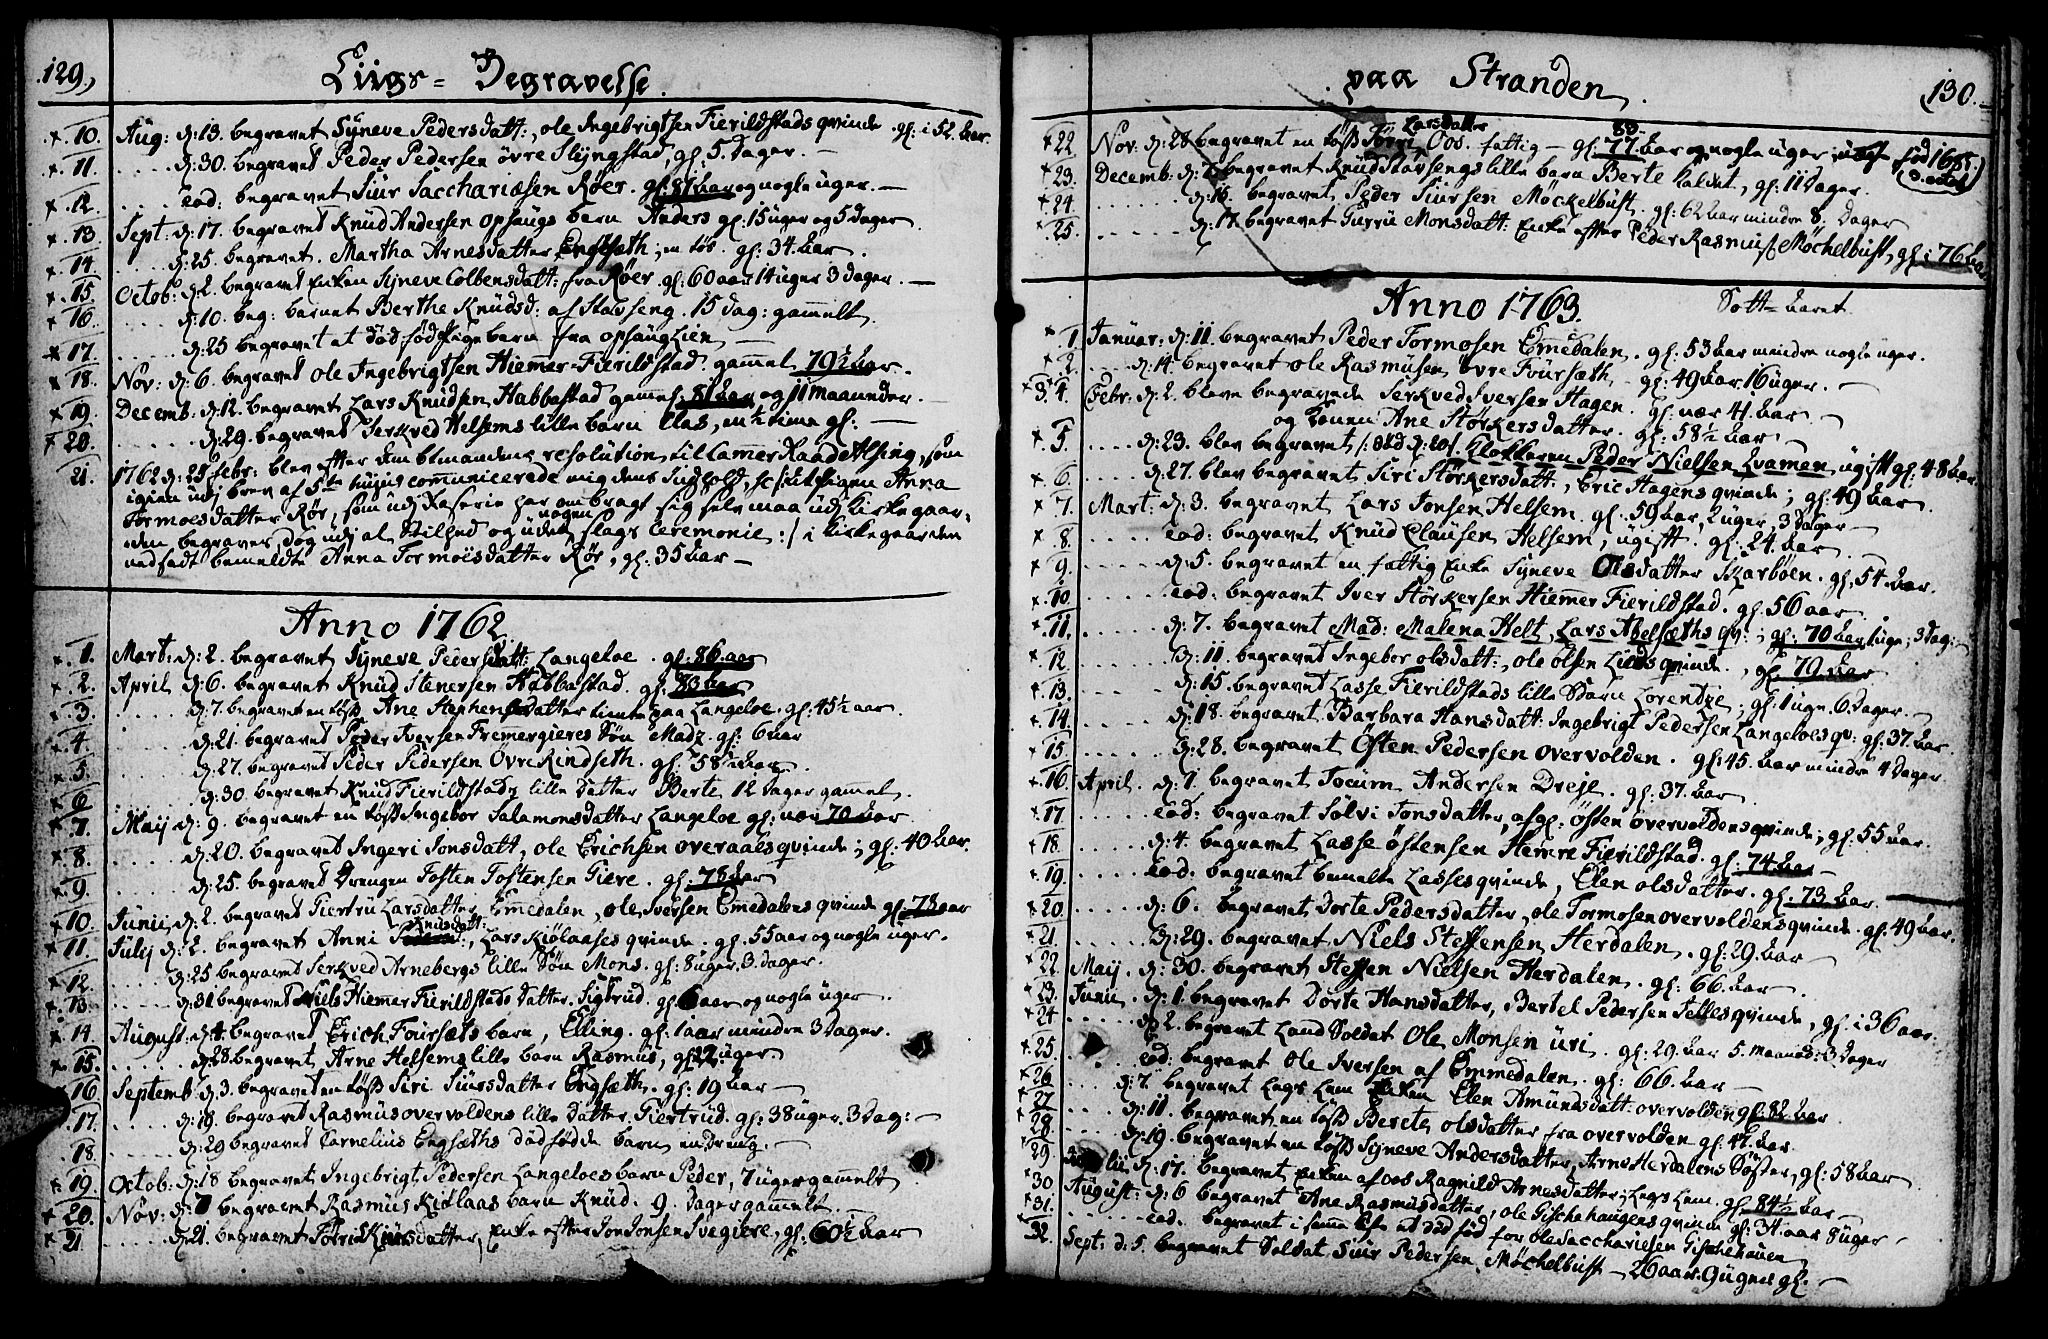 129.
Liigs-Begravelse.
10. Aug: d: 13. begravet Syneve Pedersdatt:, ole Ingebrigtsen Fierildstads qvinde. gl: i 52. Aar.
11. d: 30. begravet Peder Pedersen övre Slÿngstad, gl. 5. Dager. —
12. eod: begravet Siur Sacchariæsen Røer. gl: 81 Aar og nogle uger. —
13. Sept: d: 17. begravet Knud Andersen Opshaugs barn Anders gl: 15 uger og 5 dager
14. d: 25. begravet. Martha Arnesdatter Engesæth, en løs. gl: 34. Aar.
15. Octob: d: 2. begravet Enken Syneve Colbensdatt: fra Røer. gl: 60 aar 14 uger 3 dager. —
16. d: 10. beg: barnet Berthe Knudsd: af Stavseng. 15 dag: gammelt.
17. d: 25 begravet et død-fød Pigebarn fra opshaug Lien
18. Nov: d: 6. begravet Ole Ingebrigtsen Hiemmer-Fierildstad. gammel 79½ Aar.
19. Decemb: d: 12. begravet Lars Knudsen Habbastad gammel: 81 Aar og 11 maaneder.
20. d: 29. begravet Serkved Helsems lille barn Clas, en ½ time gl: —
21. 1762 d: 25 febr: blev efter Amtmandens resolution til CammerRaad Alsing, som
igien udj brev af 5te hujus communicerede mig dens Indhold, sc: /: at Pigen Anna
Tormoesdatter Rör, som udj Raserie har ombragt sig selv maa udj kirkegaar-
den begraves, dog udj al Stilhed og uden nogen slags Ceremonie :/ i kirkegaarden
nedsadt bemeldte Anna Tormoisdatter Rör, gl: 35 Aar —
Anno 1762.
1. Mart: d: 2. begravet Syneve Pedersdatt: Langeloe. gl: 86. aar
2. April d: 6. begravet Knud Stenersen Habbastad. gl: 83 Aar
3. d: 7. begravet en løss Ane Stephensdatter tiente paa Langeloe. gl: 45½ aar.
4. d: 21. begravet Peder Iversen Fremergieres Sön Madz. gl: 6 aar
5. d: 27. begravet Peder Pedersen Övre Rindseth. gl: 58½ Aar.
6. d: 30. begravet Knud Fierildstads lille datter Berte 12 Dager gammel.
7. Maij d: 9. begravet en løss Ingebor Salamonsdatter Langeloe gl: nær 70 Aar
8. d: 20. begravet Ingeri Jonsdatt, ole Erichsen overaaes qvinde; gl: 40 Aar.
9. d: 25. begravet Drengen Tosten Tostensen Giere. gl: 78 Aar
10. Junii, d: 2. begravet Giertru Larsdatter Emmedalen, ole Iversen Emedalens qvinde gl: 78 aar
Knudsdatt:
11. Julij d: 2. begravet Anni , Lars Kiölaases qvinde. gl: 55 aar og nogle uger.
12. d: 25 begravet Serkved Arnebergs lille Sön Mons. gl: 8 uger. 3. dager.
13. d: 31 begravet Niels Hiemer Fierildstads datter. Sigtrud. gl: 6 aar og nogle uger.
14. August. d: 4. begravet Erich Foursæts barn, Elling. gl: 1 aar mindre 3 Dager.
15. d: 28. begravet, Arne Helsems lille barn Rasmus, gl: 22 uger
16. Septemb: d. 3. begravet en løss Siri Siursdatter Engsæth. gl: 19 Aar —
17. d: 18. begravet Rasmus overvoldens lille datter Giertrud. gl: 38 uger. 3 dag: —
18. d: 29 begravet Cornelius Engsæths dødfødde barn en Dreng. —
19. Octob: d: 18 begravet Ingebrigt Pedersen Langeloes barn Peder, 7 uger gammelt
20. Nov: d: 7 begravet Rasmus Kiölaas barn Knud. 9. dager gammelt. —
21. d: 21. begravet Torri Knudsdatter, Enke efter Jon Jonsen Svegiere, gl: 60½ Aar
paa Stranden.
130.
Larsdatter 83.
22. Nov: d: 28. begravet en løss Torri Oos. fattig — gl: 77 Aar og nogle uger fød 1685
23. Decemb: d: 7. begravet Knud Stavsengs lille barn Berte kaldet, gl: 11 Dager.
24. d: 16. begravet Peder Siursen Möckelbust. gl: 62 Aar mindre 8. Dager
25. d: 17. begravet Gurru Monsdatt: Enke efter Peder Rasmuss: Möchelbust, gl: 76 Aar
Anno 1763. Sott-Aaret.
1. Januar: d: 11. begravet Peder Tormosen Emedalen. gl: 53 Aar mindre nogle uger.
2. d: 14. begravet ole Rasmusen övre Foursæth — gl: 49 Aar 16 uger. —
3. 4. Febr: d: 2. bleve begravede Serkved Iversen Hagen. gl: nær 41. Aar —
og konen Ane Störkersdatter. gl: 58½ Aar —
5. d: 23. blev begravet /: død d: 20/. Klokkeren Peder Nielsen Kvamen, ugift gl: 48 Aar.
6. d: 27. blev begravet Siri Störkersdatt:, Eric Hagens qvinde; gl: 49 Aar
7. Mart: d: 3. begravet Lars Jonsen Helsem. gl: 59 Aar, 2 uger, 3 Dager —
8. eod: begravet Knud Clausen Helsem, ugift. gl: 24. Aar.
9. d: 5. begravet en fattig Enke Syneve Olsdatter Skarböen. gl: 54. Aar.
10. eod: begravet Iver Störkersen Hiemmer Fierildstad. gl: 56 aar
11. d: 7. begravet Mad: Malena Helt, Lars Abelsæths qv:; gl: 70 Aar 1 uge, 3 Dag: —
12. d: 11. begravet Ingebor olsdatt:, ole olsen Lieds qvinde., gl: 70. Aar
13. d: 15. begravet Lasse Fierildstads lille Barn Lorentze; gl: 1 uge. 6. Dager. —
14. d: 18. begravet Barbara Hansdatt: Ingebrigt Pedersen Langeloes qv: gl: 37. Aar.
15. d: 28. begravet Östen Pedersen overvolden. gl: 45. Aar mindre 4 Dager.
16. April. d: 1. begravet Jocum Andersen Dreje. gl: 37. Aar
17. eod: begravet Sølvi Jonsdatter, afgl: Östen overvoldens qvinde; gl: 55 Aar.
18. d: 4. begravet Lasse Östensen Hemre Fierildstad. gl: 74 Aar
19. eod: begravet bemelte Lasses qvinde, Elen olsdatter. gl: 73. Aar.
20. d: 6. begravet Dorte Pedersdatter, ole Tormosen overvoldens qvinde. gl: 49 Aar.
21. d: 29. begravet Niels Steffensen Herdalen. gl: 29. Aar
22. Maij. d: 30. begravet Steffen Nielsen Herdalen. gl: 66. Aar
23. Junii. d: 1. begravet Dorte Hansdatter, Bertel Pedersen Telles qvinde, gl: i 36 aar.
24. d: 2. begravet Land Soldat Ole Monsen Uri. gl: 29. Aar 5. maaned: 3 Dager
25. eod: begravet Ole Iversen af Emmedalen. gl: 66. Aar —
26 d: 7. begravet Legs Lem Enken Elen Amundsdatt: overvolden gl: 82 Aar
27 d: 11. begravet en løss Berete olsdatter fra overvolden gl: 47. Aar.
28. d: 19. begravet en løss Syneve Andersdatter, Arne Herdalens Söster, gl: 58 Aar
29 Julii, d: 17. begravet Enken af oos Ragnild Arnesdatter; Legs Lem. gl: 84½ Aar —
30 August: d: 6 begravet Ane Rasmusdatter, ole Gischehaugens qvinde gl: 34. aar 8 uger —
31. eod. begravet i samme Kiste et død fød for ole Sacchariesen Gischehauen
32. Sept: d: 5. begravet Soldat, Siur Pedersen Möchelbust — 26 aar. 9 uger gl. —